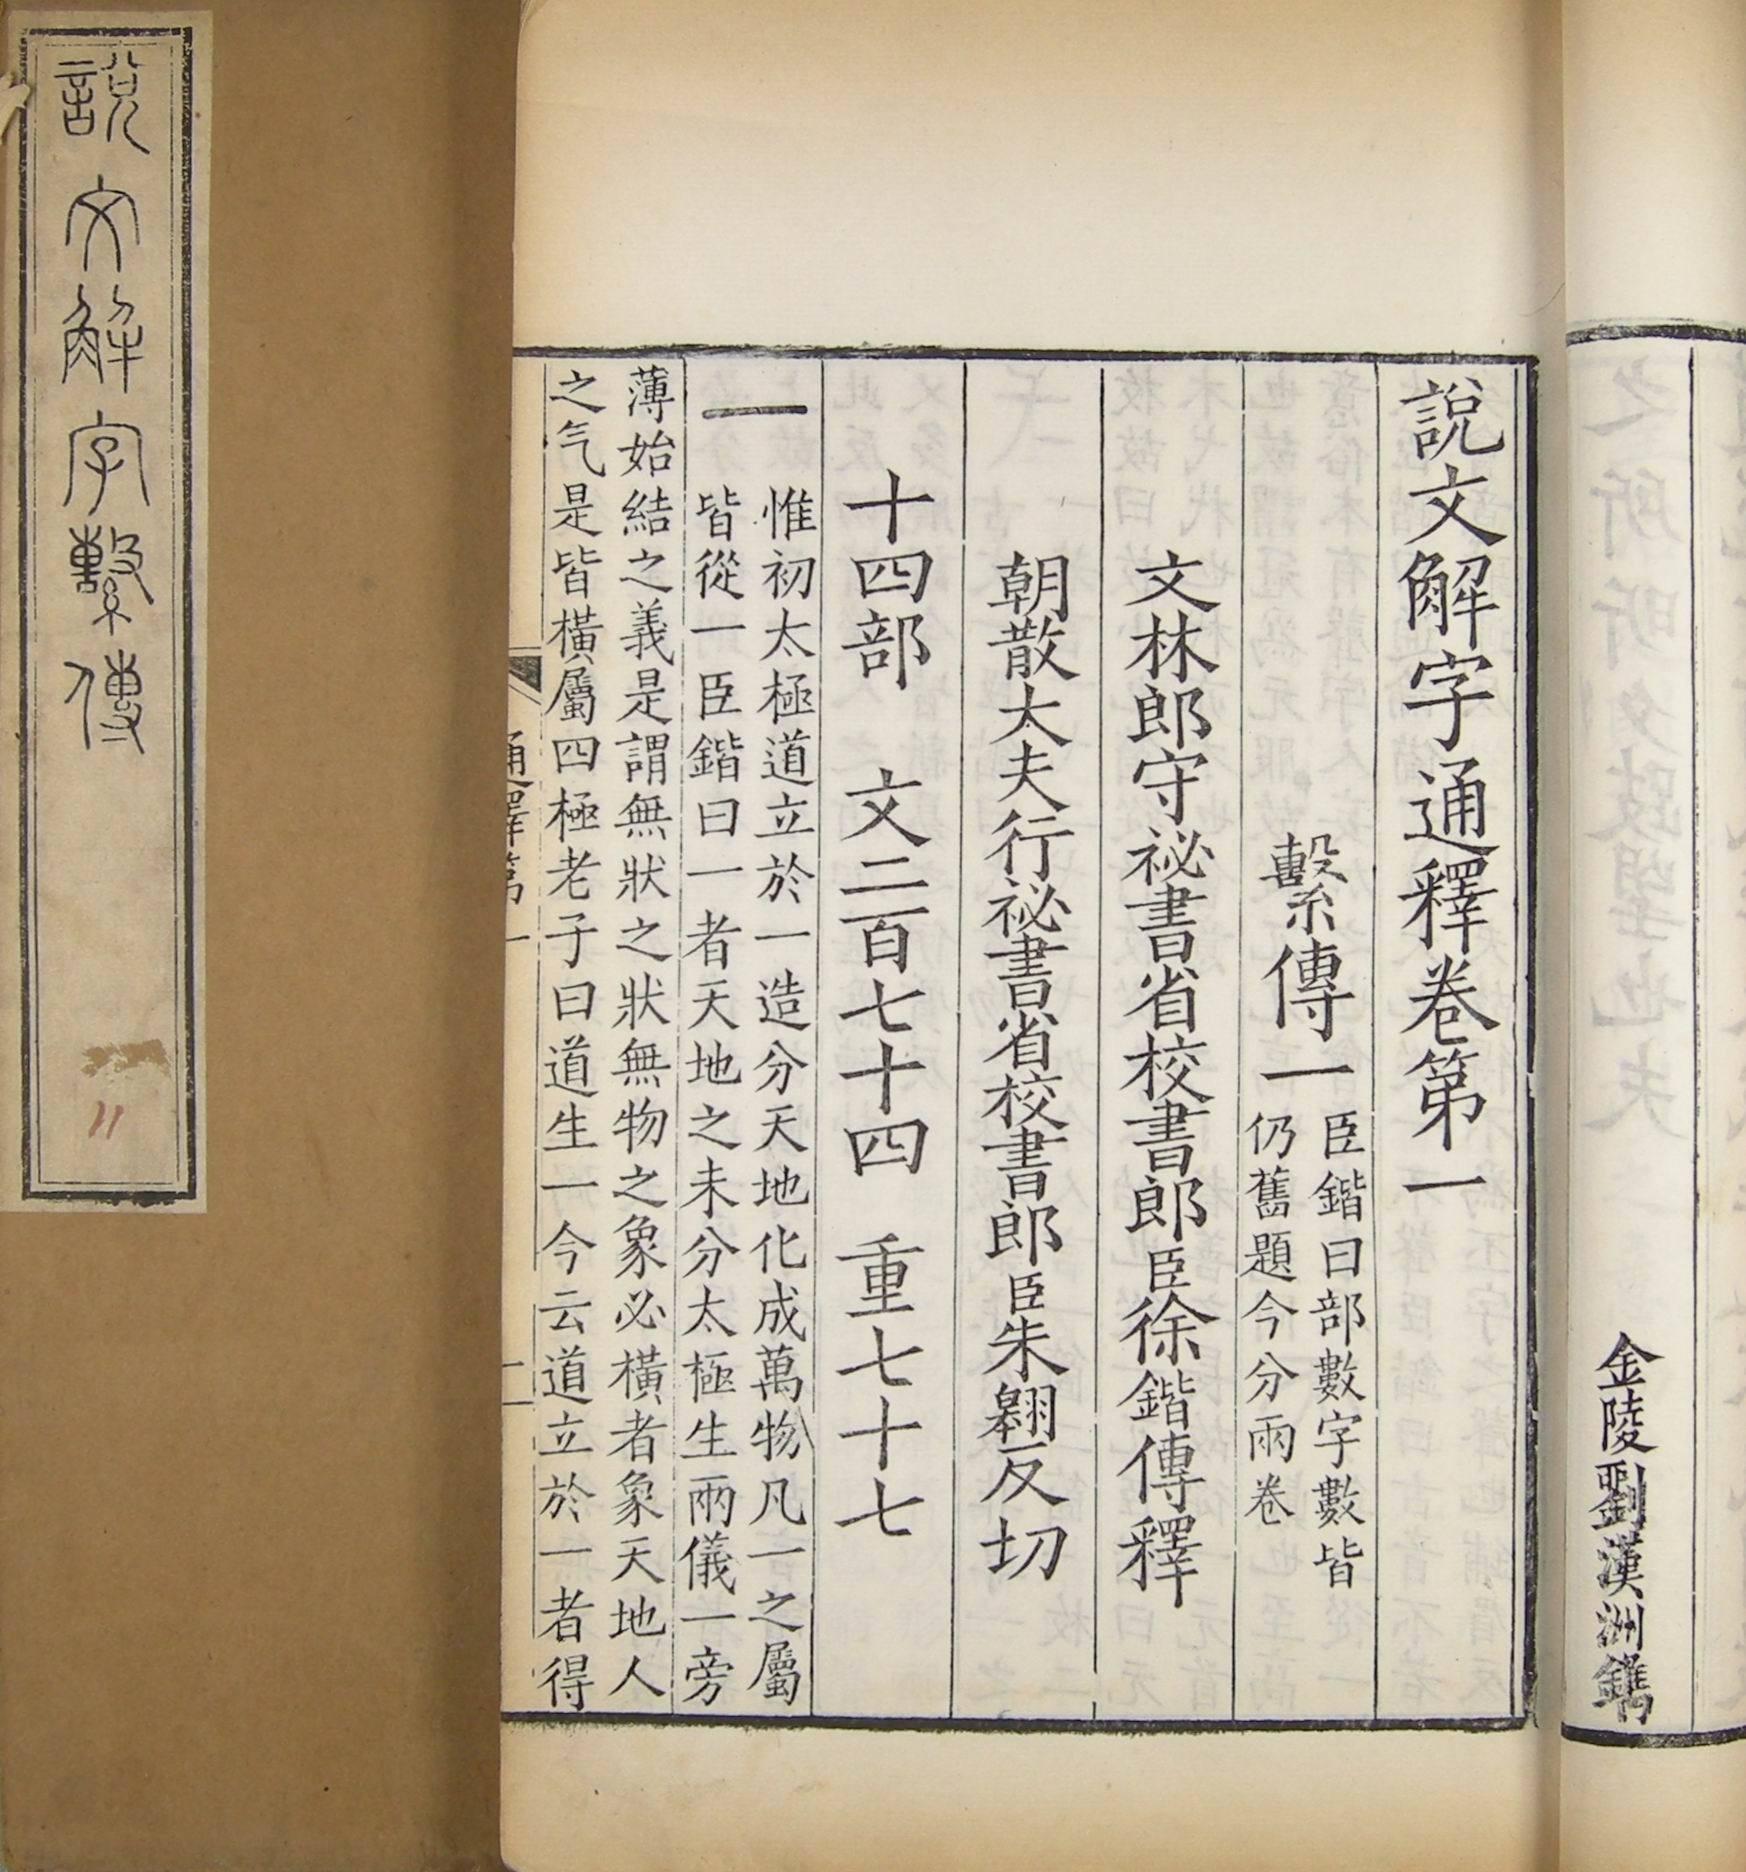 說文解字繫傳
11
金陵劉漢洲鐫
說文解字通釋卷第一
繫傳一 臣鍇曰部數字數皆
仍舊題今分兩卷
文林郎守祕書省校書郎臣徐鍇傳釋
朝散大夫行祕書省校書郎臣朱翱反切
十四部 文二百七十四 重七十七
一 惟初太極道立於一造分天地化成萬物凡一之屬
皆從一臣鍇曰一者天地之未分太極生兩儀一旁
薄始結之義是謂無狀之狀無物之象必橫者象天地人
之气是皆橫屬四極老子曰道生一今云道立於一者得
通釋第一
二